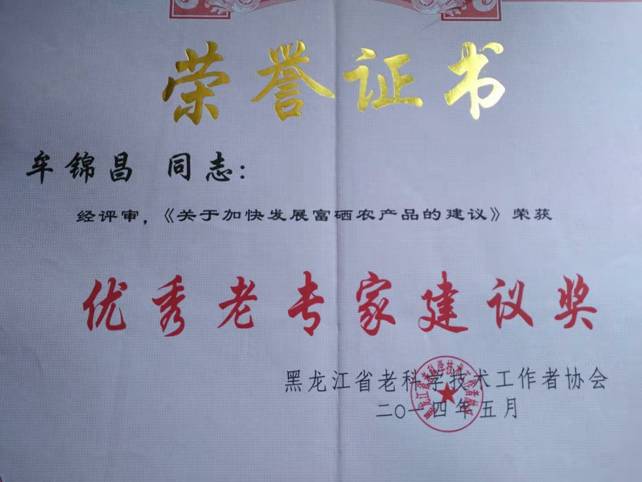 荣誉证书
牟锦昌 同志：
经评审，《关于加快发展富硒农产品的建议》荣获
优秀老专家建议奖
黑龙江省老科学技术工作者协会
二〇一四年五月